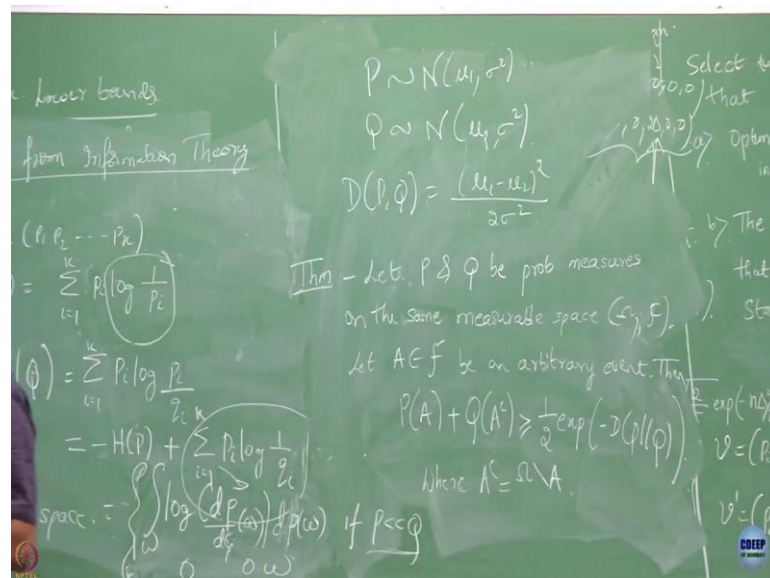 Lower bands
from Information Theory
(P1 P2 ---- Pk)
= ∑_{i=1}^{k} Pi log 1/Pi
Q) = ∑_{i=1}^{k} Pi log Pi/qi
= -H(P) + ∑_{i=1}^{k} Pi log 1/qi
space. = { ∫_ω log (dP/dq (ω)) dP(ω) if P<<Q
P ~ N(μ1, σ²)
Q ~ N(μ2, σ²)
D(P, Q) = (μ1-μ2)²/2σ²
Thm - Let P & Q be prob measures
on the same measurable space (Ω, F).
Let A∈F be an arbitrary event. Then
P(A) + Q(A^c) ≥ 1/2 exp(-D(P||Q))
Where A^c = Ω\A.
Select
0,0,0) that
, 0, 2Δ, 0, 0) a> Optim
in
b> The
that
Sta
exp(-nΔ²
ν = (P
ν' = (P
NPTEL
CDEEP
IIT BOMBAY